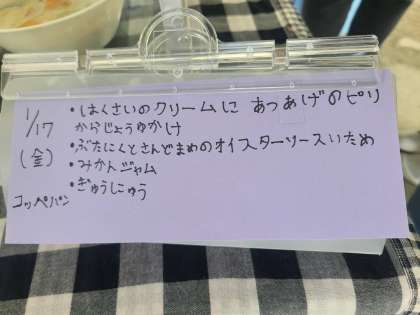 1/17
(金)
コッペパン
・はくさいのクリームに あつあげのピリ
からじょうゆかけ
・ぶたにくとさんどまめのオイスターソースいため
・みかんジャム
・ぎゅうにゅう